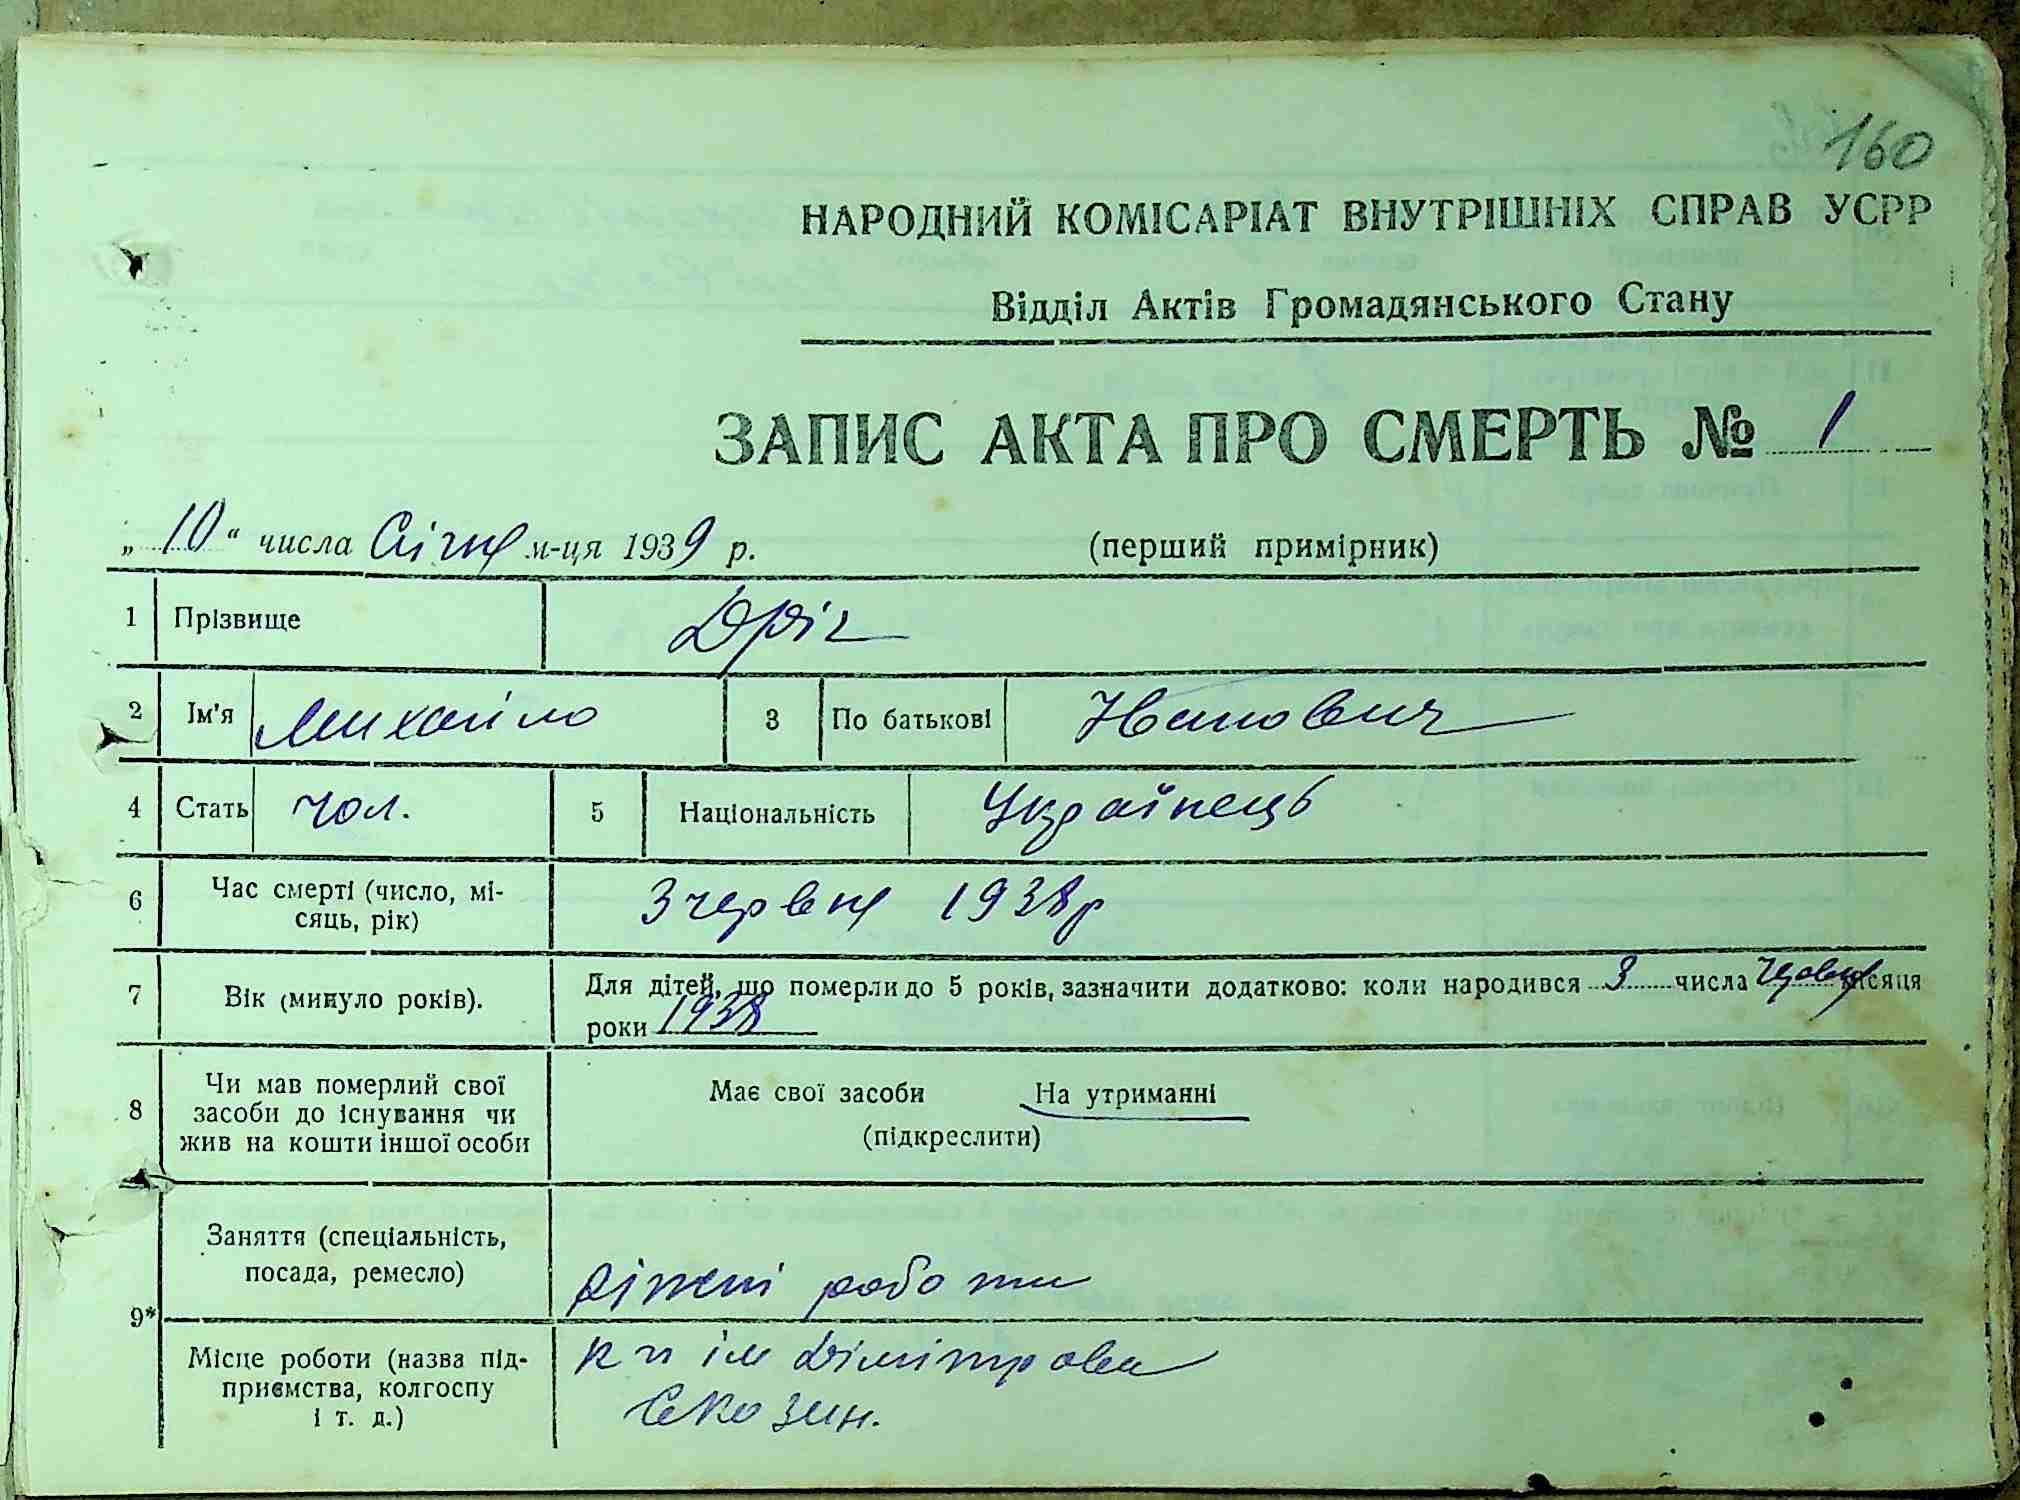 160
НАРОДНИЙ КОМІСАРІАТ ВНУТРІШНІХ СПРАВ УСРР
Відділ Актів Громадянського Стану
ЗАПИС АКТА ПРО СМЕРТЬ № 1
„10“ числа Січня м-ця 1939 р. (перший примірник)
1 Прізвище Дріг
2 Ім'я Михайло 3 По батькові Иванович
4 Стать чол. 5 Національність Українець
6 Час смерті (число, мі-
сяць, рік) 3 червня 1938 р
7 Вік (минуло років). Для дітей, що померли до 5 років, зазначити додатково: коли народився 3 числа місяця
роки 1938
8 Чи мав померлий свої
засоби до існування чи
жив на кошти іншої особи
Має свої засоби На утриманні
(підкреслити)
9* Заняття (спеціальність,
посада, ремесло) різні роботи
Місце роботи (назва під-
приємства, колгоспу
і т. д.)
к п ім Дімітрова